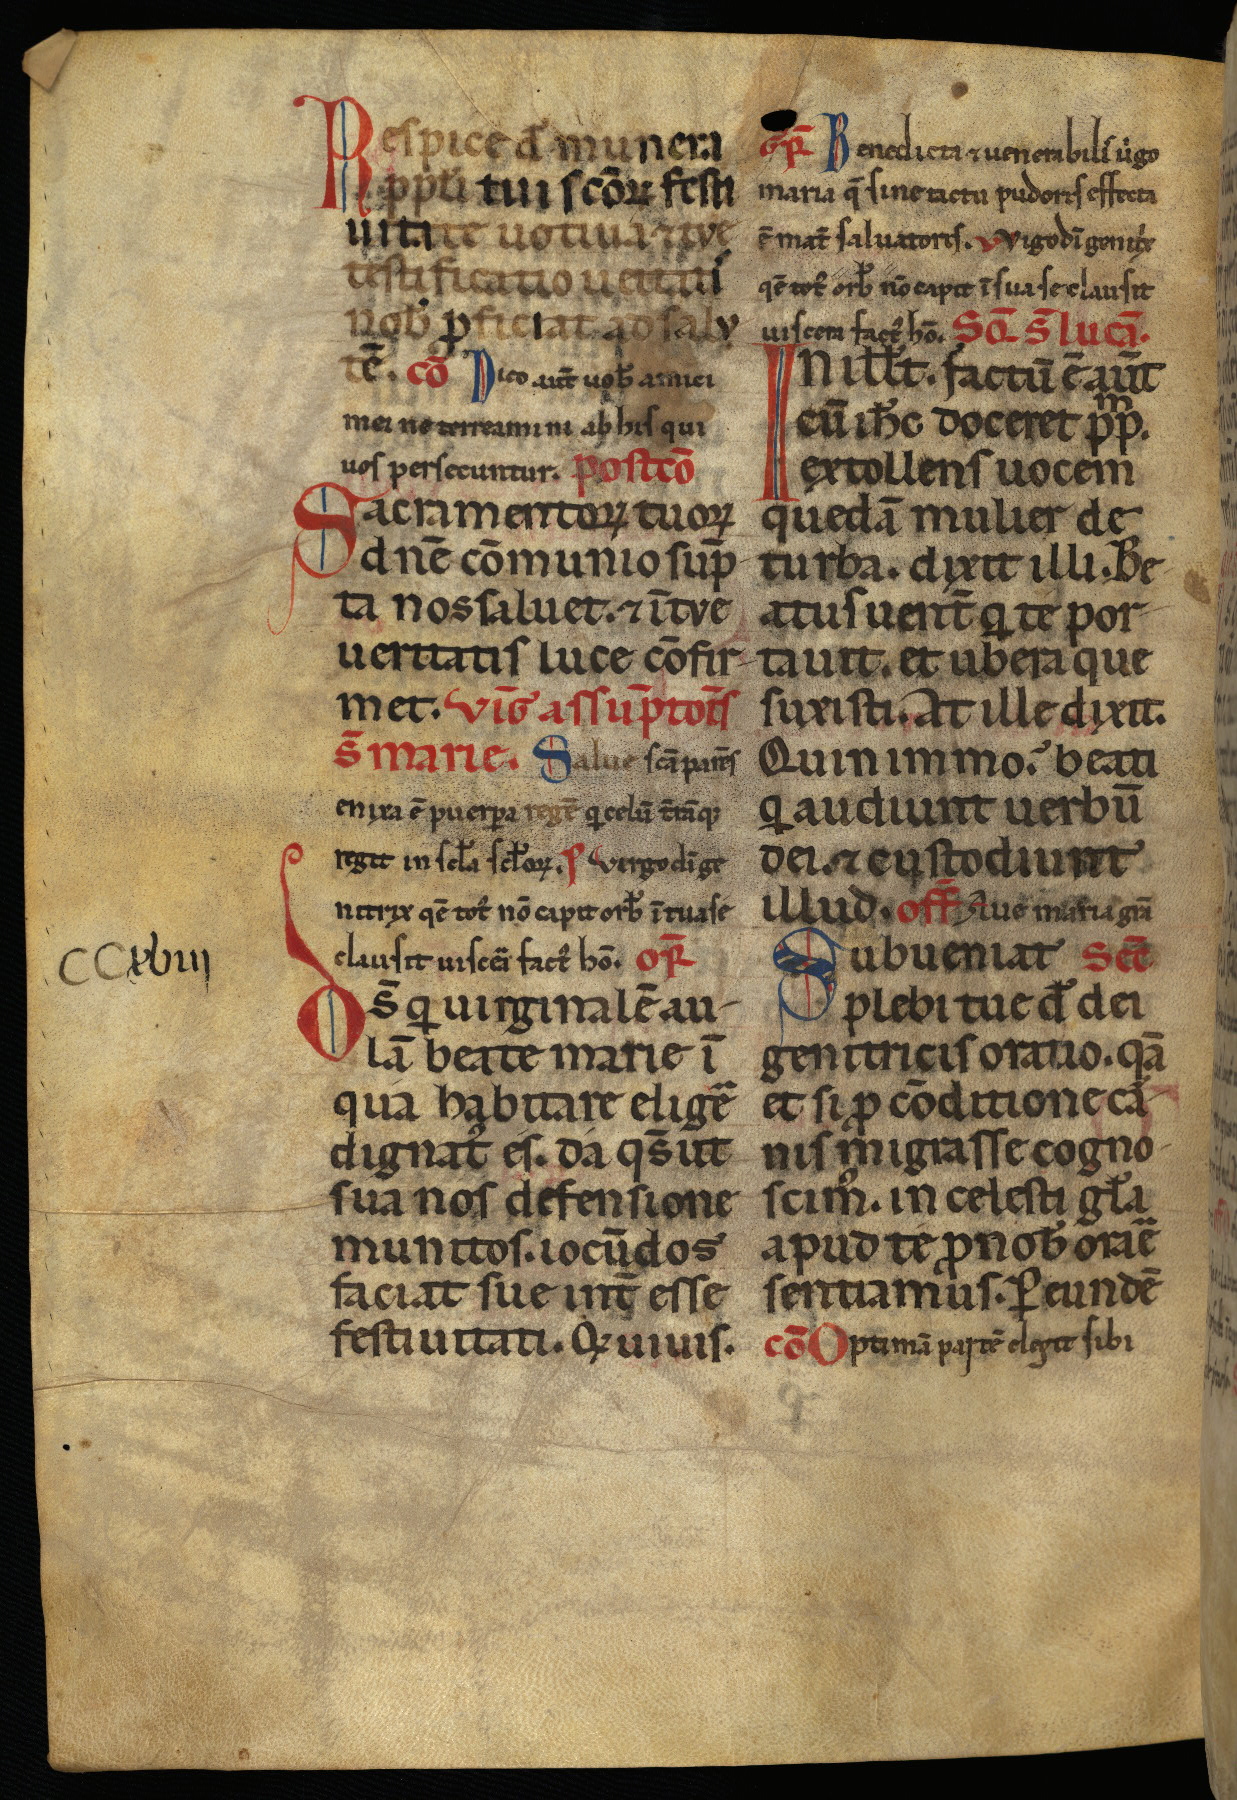 Respice d̄ munera
p̄ pp̄li tui sc̄oꝝ festi
uitate uotiua ⁊ tve
testificatio ueritati
nob̄ ꝓficiat ad salv
tē. cō Dico aut̄ uob̄ amici
mei ne terreamini ab his qui
uos persecuntur. postcō
Sacramentoꝝ tuoꝝ
dn̄e cōmunio sūp
ta nos saluet. ⁊ ī tve
ueritatis luce cōfir-
met. viḡ assūptōis
s̄ marie. Salue sc̄a parēs
enixa ē puerpa regē q̇ celū t̄rāq̢
regit in sc̄la sc̄loꝝ. ꝟ Virgo dī ge
nitrix quē tot᷒ nō capit orb̄ ī tua se
clausit uisceā fact᷒ hō. oꝝ̄
Ds̄ q̇ uirginalē au-
lā beate marie ī
qua habitare eligēͣ
dignat᷒ es. da qs̄ ut
sua nos defensione
munitos. iocūdos
faciat sue int̄ esse
festiuitati. Qꝝ uiuis.
CCxviiij
gr̄ Benedicta ⁊ uenerabilis u̇go
maria q̄ sine tactu pudoris effecta
ē mat̄ saluatoris. ꝟ Vigo dī genitẋ
quē tot᷒ orb̄ nō capit ī sua se clausit
uiscera fact᷒ hō. Sq̄ s̄ lucā.
In ill̄ t̄. factū ē aūt
cū ih̄c doceret pp̄.
m
extollens uocem
quedā mulier de
turba. dixit illi. Be-
atus uent̄ q̇ te por-
tauit. et ubera que
suxisti. At ille dixit.
Quin immo. beati
q̇ audiunt uerbū
dei. ⁊ custodiunt
illud. off̄ Aue maria grā
Subueniat Sec̄
plebi tue d̄ dei
genitricis oratio. quā
et si ꝓ cōditione car-
nis migrasse cogno-
scim᷒. in celesti gl̄a
apud te ꝓ nob̄ oraēͣ
sentiamus. P̄ eundē
cō Optimā partē elegit sibi